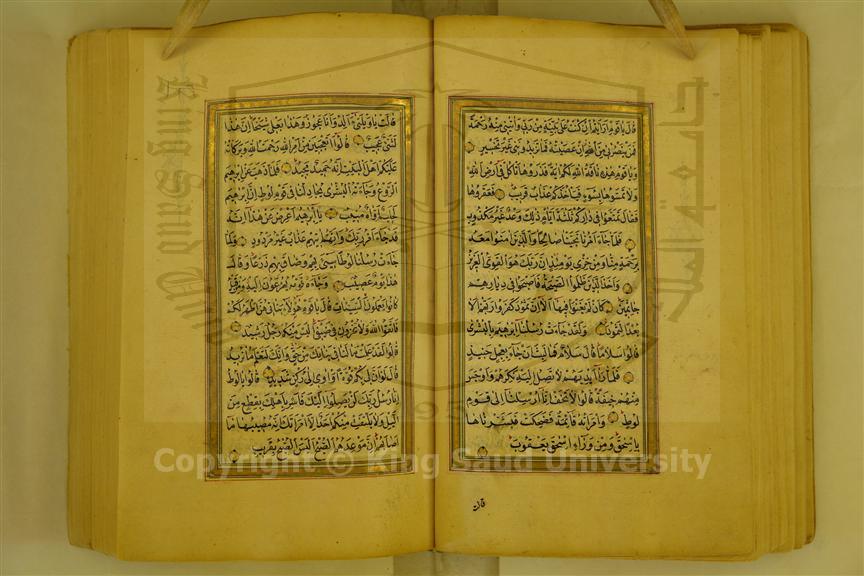 قال يا قوم ارايتم ان كنت على بينة من ربي واتيني منه رحمة
فمن ينصرني من الله ان عصيته فما تزيدونني غير تخسير
ويا قوم هذه ناقة الله لكم اية فذروها تاكل في ارض الله
ولا تمسوها بسوء فياخذكم عذاب قريب فعقروها
فقال تمتعوا في داركم ثلثة ايام ذلك وعد غير مكذوب
فلما جاء امرنا نجينا صالحا والذين امنوا معه
برحمة منا ومن خزي يومئذ ان ربك هو القوي العزيز
واخذ الذين ظلموا الصيحة فاصبحوا في ديارهم
جاثمين كان لم يغنوا فيها الا ان ثمود كفروا ربهم الا
بعدا لثمود ولقد جاءت رسلنا ابرهيم بالبشرى
قالوا سلاما قال سلام فما لبث ان جاء بعجل حنيذ
فلما رأى ايديهم لا تصل اليه نكرهم واوجس
منهم خيفة قالوا لا تخف انا ارسلنا الى قوم
لوط وامراته قائمة فضحكت فبشرناها
باسحق ومن وراء اسحق يعقوب
قالت
قالت يا ويلتى ءالد وانا عجوز وهذا بعلي شيخا ان هذا
لشئ عجيب قالوا اتعجبين من امر الله رحمة الله وبركاته
عليكم اهل البيت انه حميد مجيد فلما ذهب عن ابرهيم
الروع وجاءته البشرى يجادلنا في قوم لوط ان ابرهيم
لحليم اواه منيب يا ابرهيم اعرض عن هذا انه
قد جاء امر ربك وانهم اتيهم عذاب غير مردود ولما
جاءت رسلنا لوطا سيئ بهم وضاق بهم ذرعا وقال
هذا يوم عصيب وجاءه قومه يهرعون اليه ومن قبل
كانوا يعملون السيئات قال يا قوم هؤلاء بناتي هن اطهر لكم
فاتقوا الله ولا تخزون في ضيفي اليس منكم رجل رشيد
قالوا لقد علمت ما لنا في بناتك من حق وانك لتعلم ما نريد
قال لو ان لي بكم قوة او اوي الى ركن شديد قالوا يا لوط
انا رسل ربك لن يصلوا اليك فاسر باهلك بقطع من
الليل ولا يلتفت منكم احد الا امراتك انه مصيبها ما
اصابهم ان موعدهم الصبح اليس الصبح بقريب
جامعة الملك سعود
King Saud University
1957
Copyright © King Saud University